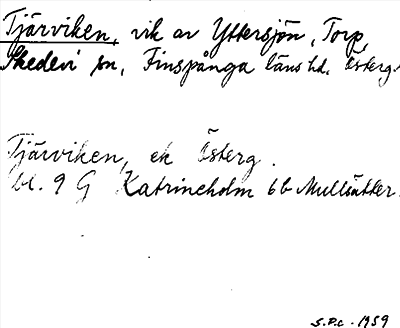 Tjärviken, vik av Yttersjön, Torp,
Skedevi sn, Finspånga läns hd. Österg.
Tjärviken, ek Österg.
bl. 9 G Katrineholm 6b Mullsätter.
S.P.C. 1959